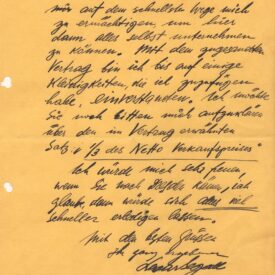 mir auf dem schnellsten Wege mich
zu ermächtigen um hier
dann alles selbst unternehmen
zu können. Mit dem zugesandten
Vertrag bin ich bis auf einige
Kleinigkeiten, die ich zuzufügen
habe, einverstanden. Ich möchte
Sie noch bitten mich aufzuklären
über den im Vertrag erwähnten
Satz " 1/3 des Netto Verkaufspreises"
Ich würde mich sehr freuen,
wenn Sie nach kämen, ich
glaube, dann würde sich alles viel
schneller erledigen lassen.
Mit den besten Grüßen
Ihr ganz ergebener